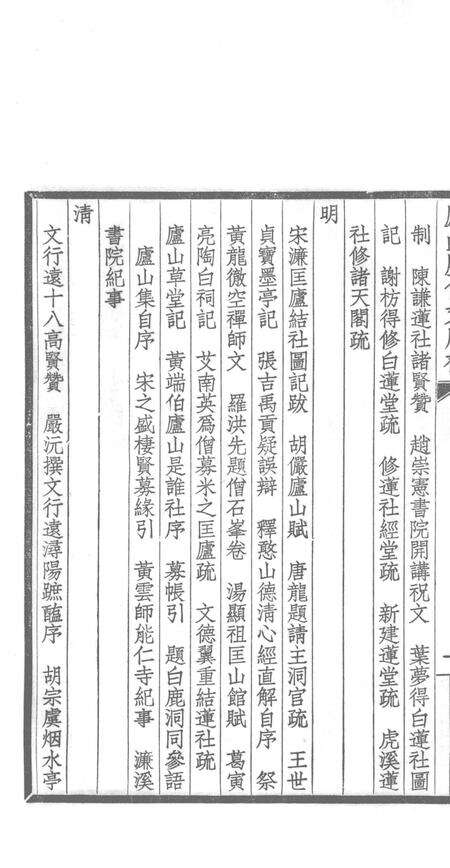 制　陳謙蓮社諸賢贊　趙崇憲書院開講祝文　葉夢得白蓮社圖
記　謝枋得修白蓮堂疏　修蓮社經堂疏　新建蓮堂疏　虎溪蓮
社修諸天閣疏
明
宋濂匡廬結社圖記跋　胡儼廬山賦　唐龍題請主洞官疏　王世
貞寶墨亭記　張吉禹貢疑誤辯　釋憨山德清心經直解自序　祭
黃龍徹空禪師文　羅洪先題僧石峯卷　湯顯祖匡山館賦　葛寅
亮陶白祠記　艾南英爲僧募米之匡廬疏　文德翼重結蓮社疏
廬山草堂記　黃端伯廬山是誰社序　募帳引　題白鹿洞同參語
廬山集自序　宋之盛棲賢募緣引　黃雲師能仁寺紀事　濂溪
書院紀事
清
文行遠十八高賢贊　嚴沆撰文行遠潯陽蹠醢序　胡宗虞烟水亭